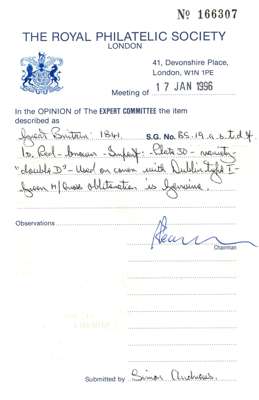 Nº 166307
THE ROYAL PHILATELIC SOCIETY
LONDON
41, Devonshire Place,
London, W1N 1PE
Meeting of 17 JAN 1996
In the OPINION of The EXPERT COMMITTEE the item
described as
Great Britain: 1841. S.G. No. BS.19.a.b.t.d.f.
1d. Red-brown - Imperf: - Plate 30 - variety
"double D" - Used on cover with Dublin type I -
green M/Cross obliteration is genuine.
Observations
Chairman
Submitted by Simon Andrews.